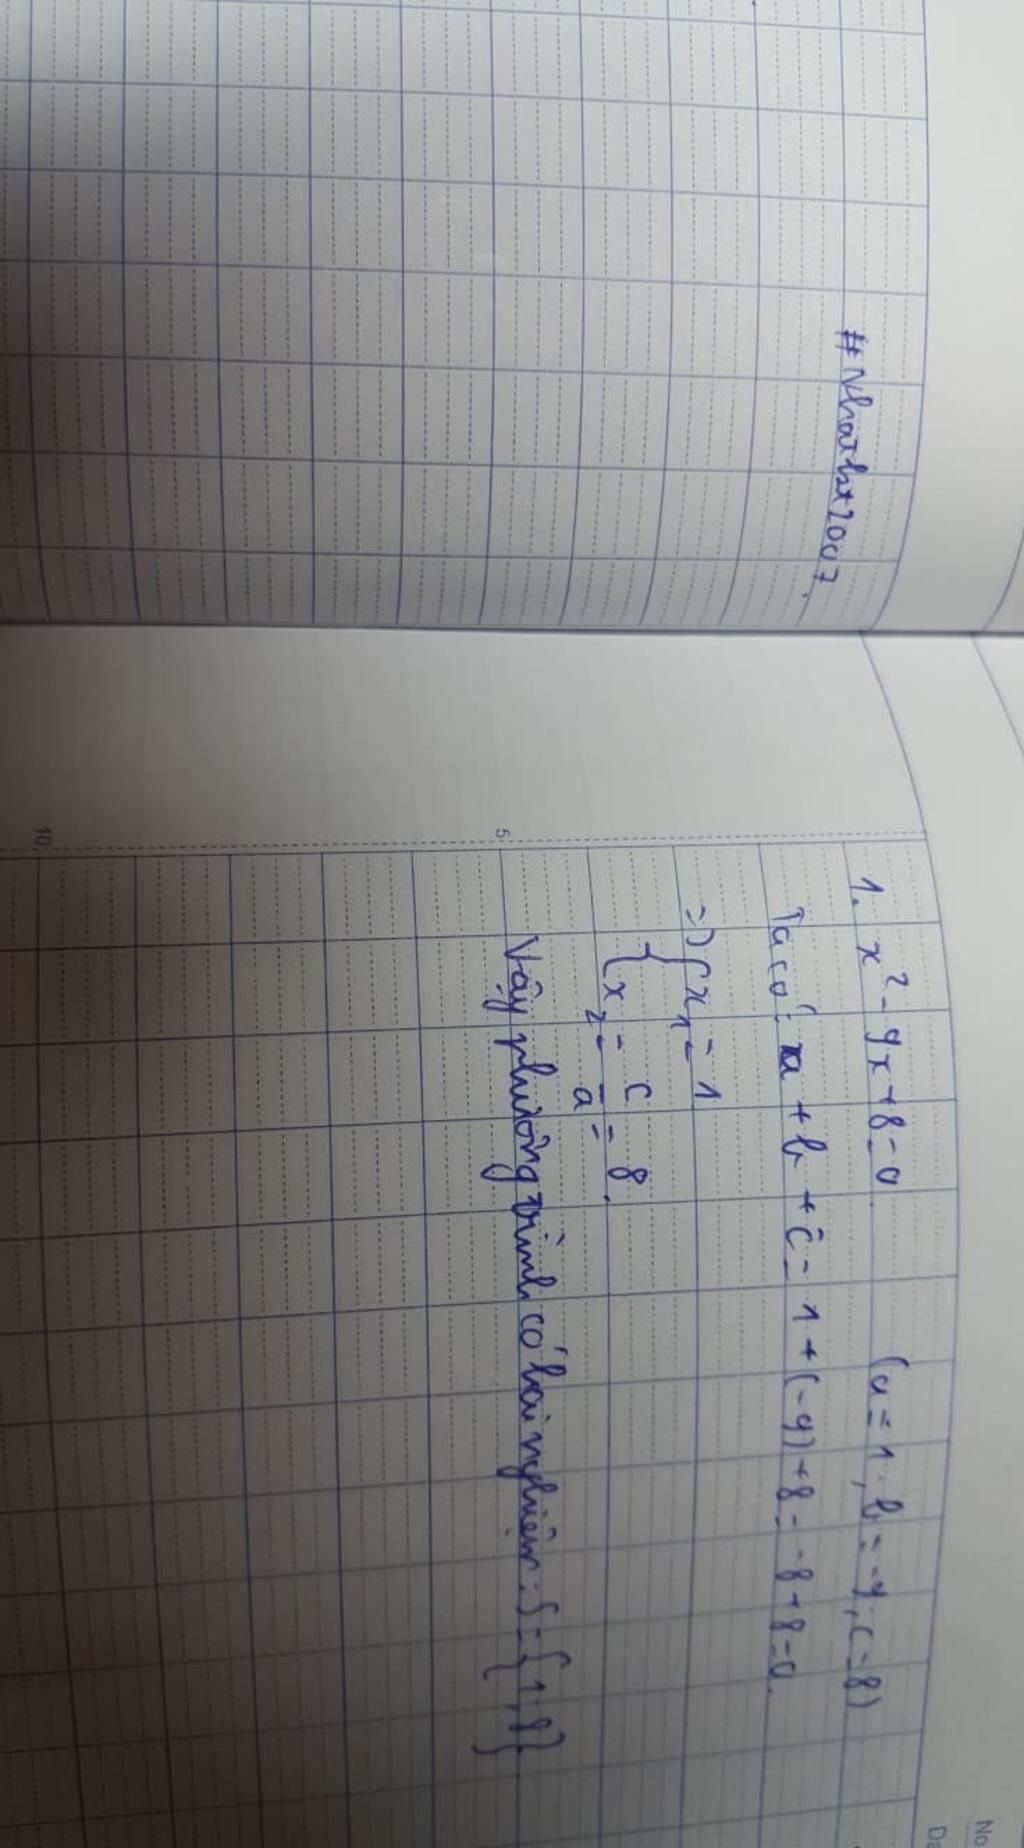 #Nhatbx2007.
No
Da
1. x² - 9x + 8 = 0 (a = 1; b = -9; c = 8)
Ta có: a + b + c = 1 + (-9) + 8 = -8 + 8 = 0.
=> { x₁ = 1
{ x₂ = c/a = 8.
5
Vậy phương trình có hai nghiệm: S = {1; 8}
10